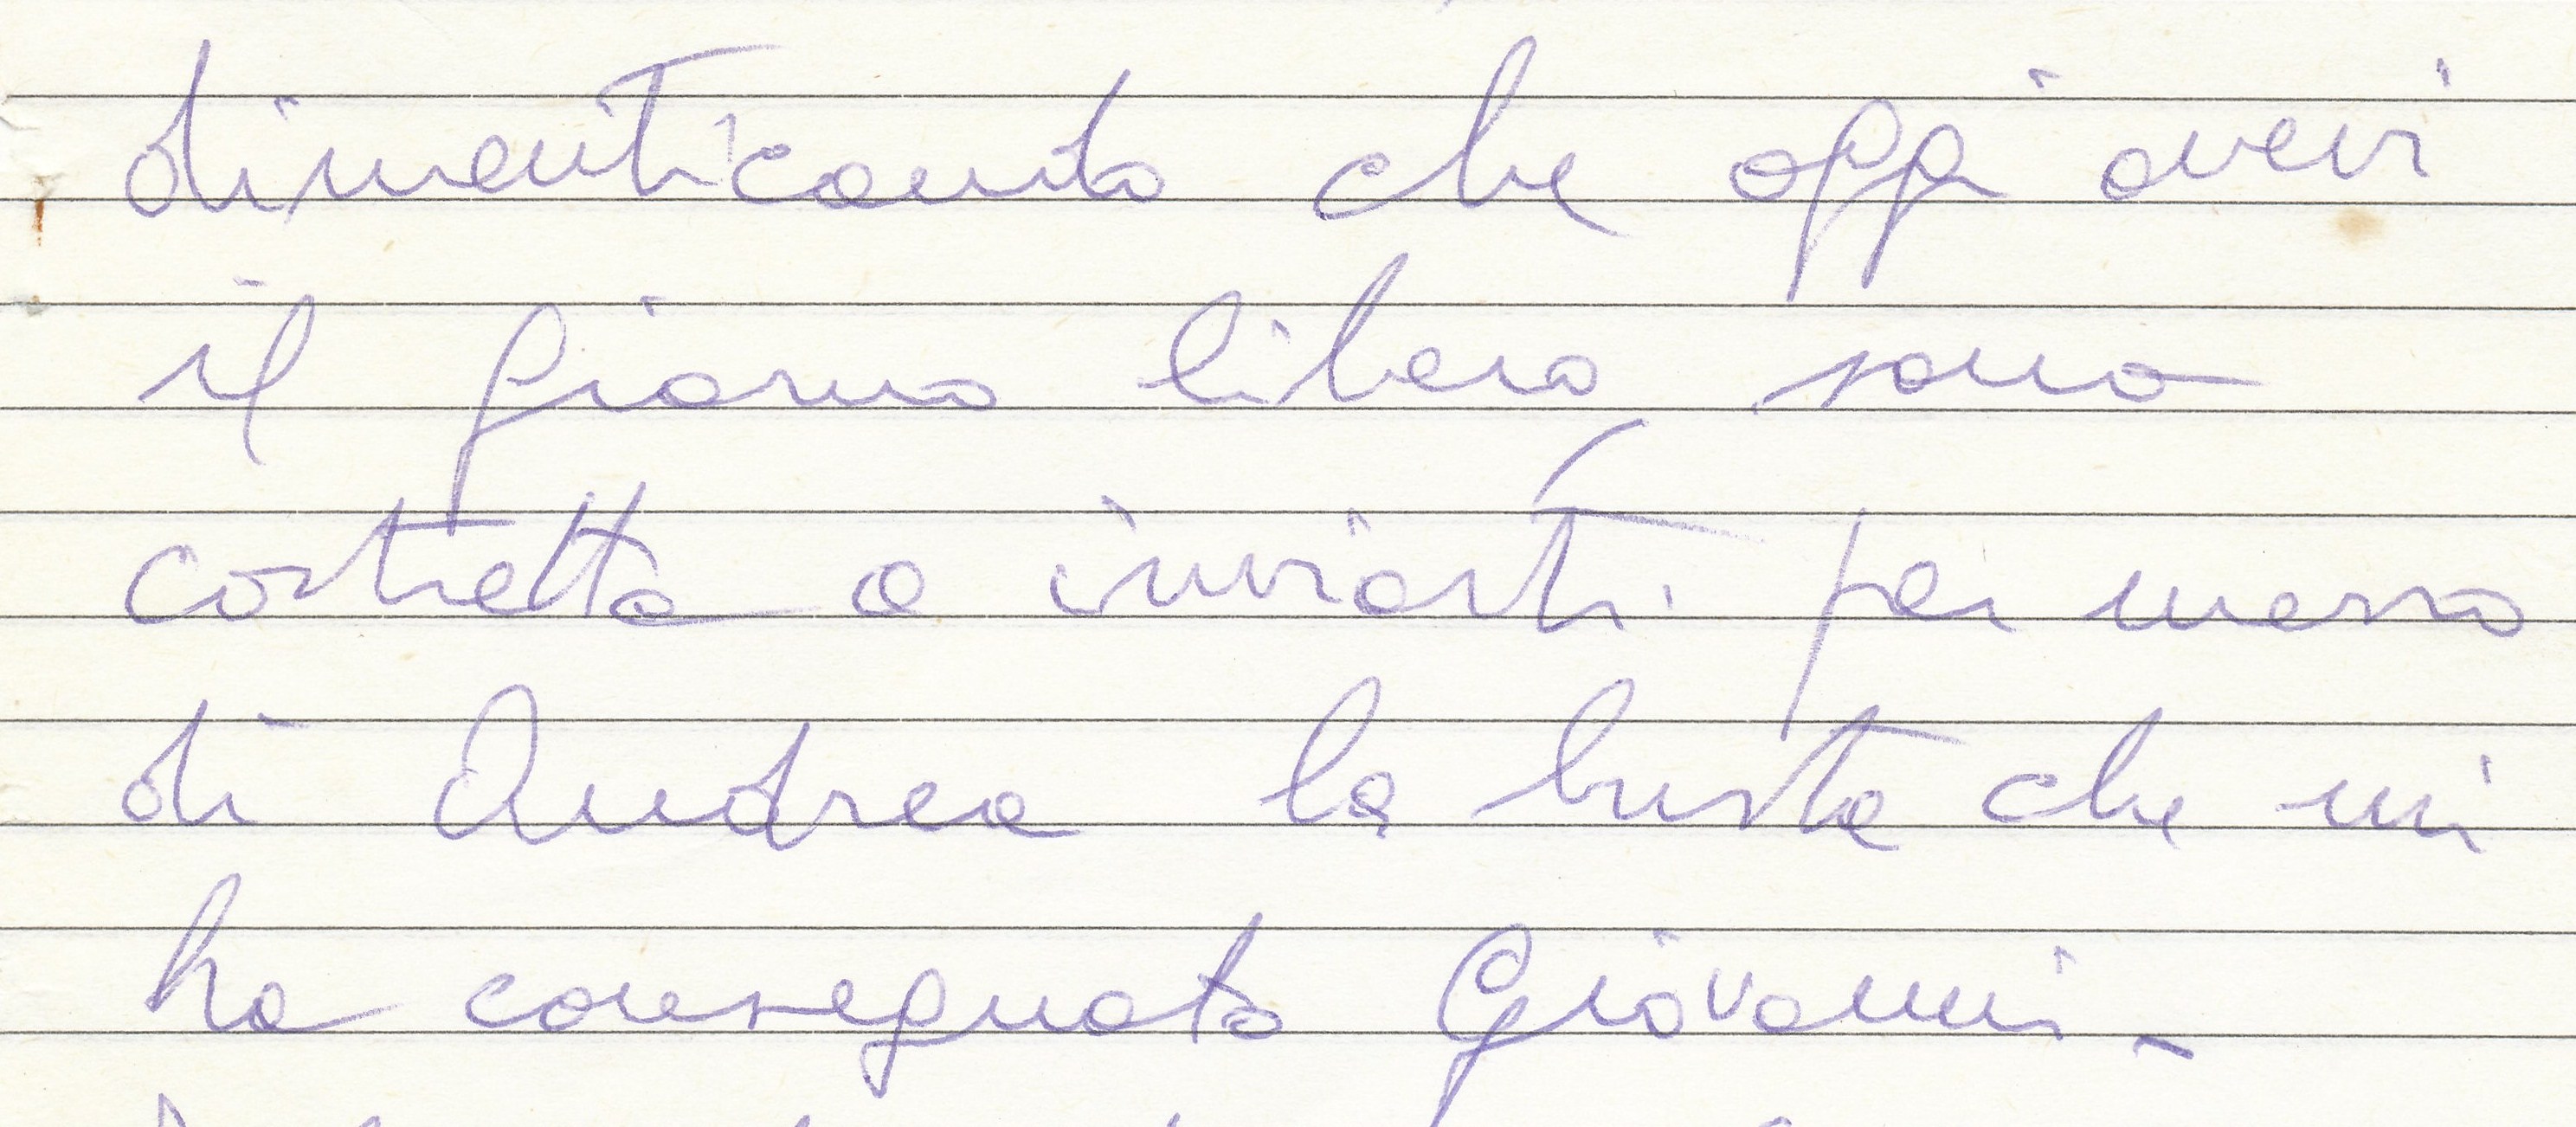 dimenticando che oggi avevi
il giorno libero, sono
costretta a inviarti per mezzo
di Andrea la busta che mi
ha consegnato Giovanni -